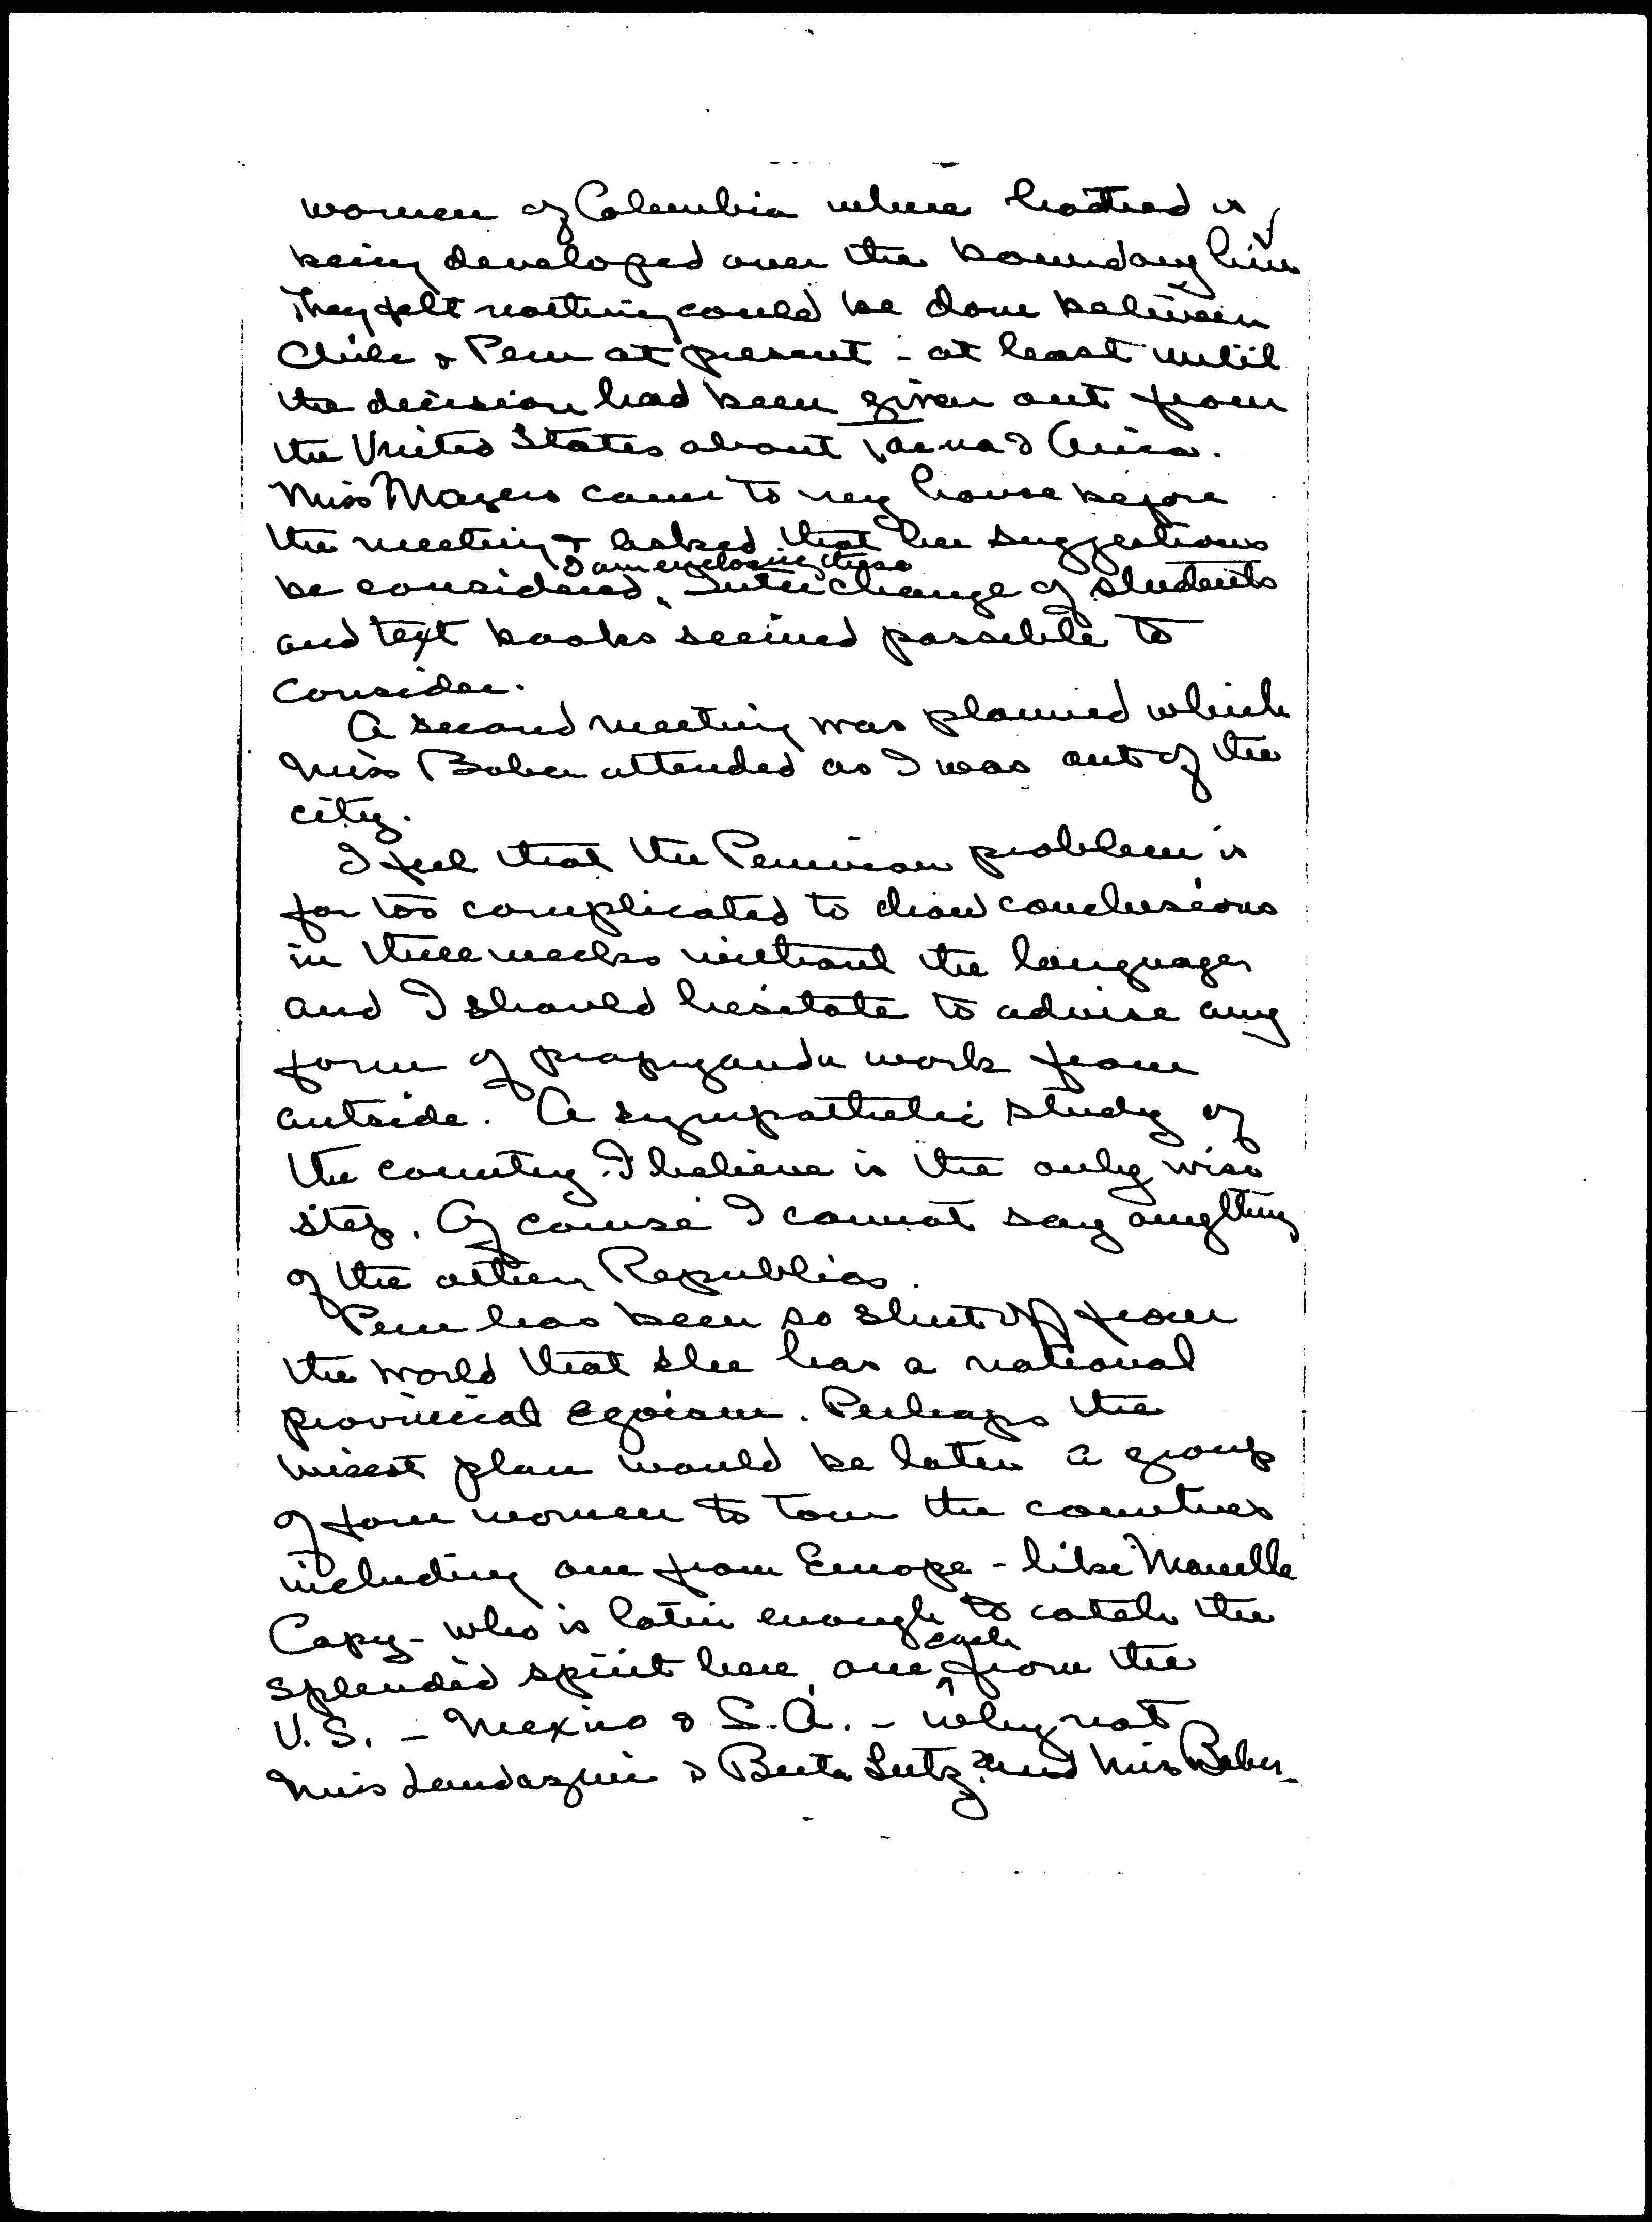 women of Columbia where hatred is
being developed over the boundary line
They felt nothing could be done between
Chile & Peru at present - at least until
the decision had been given out from
the United States about Tacna & Arica.
Miss Mayers came to my house before
the meeting & asked that her suggestions
I am enclosing these
be considered. Interchange of students
and text books seemed possible to
consider.
A second meeting was planned which
Miss Baber attended as I was out of the
city.
I feel that the Peruvian problem is
far too complicated to draw conclusions
in three weeks without the languages
and I should hesitate to advise any
form of propaganda work from
outside. A sympathetic study of
the country I believe is the only wise
step. Of course I cannot say anything
of the other Republics.
Peru has been so shut off from
the world that she has a national
provincial egoism. Perhaps the
wisest plan would be later a group
of four women to tour the countries
including one from Europe - like Marcelle
Capy - who is latin enough to catch the
each
splendid spirit here, one from the
U.S. - Mexico & S.A. - why not
Miss Landazuri & Berta Lutz? and Miss Baber -